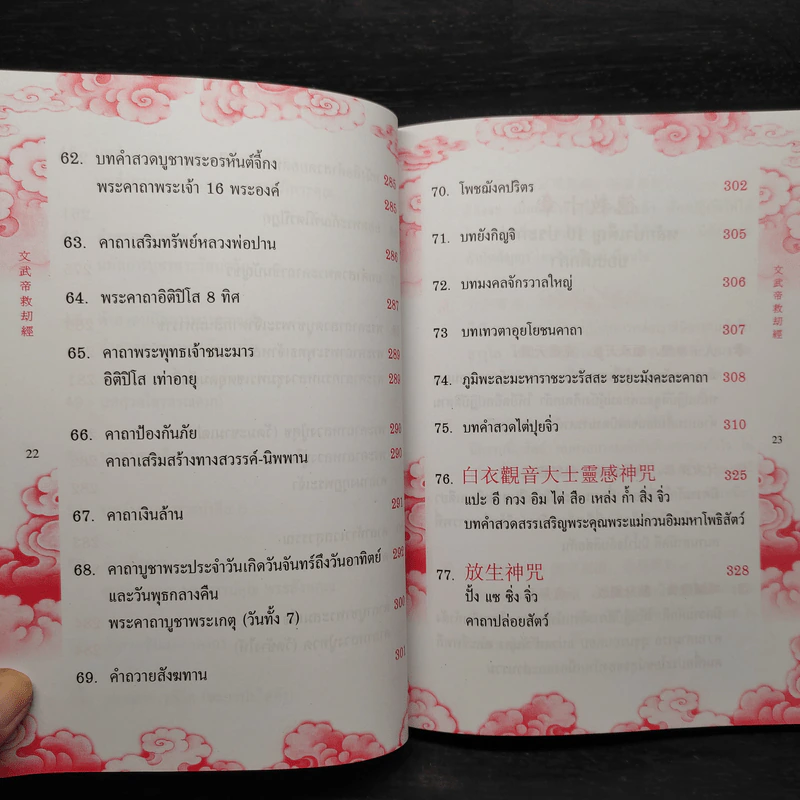 文武帝救劫經
22
62. บทคำสวดบูชาพระอรหันต์จี้กง 285
พระคาถาพระเจ้า 16 พระองค์ 285
63. คาถาเสริมทรัพย์หลวงพ่อปาน 286
64. พระคาถาอิติปิโส 8 ทิศ 287
65. คาถาพระพุทธเจ้าชนะมาร 289
อิติปิโส เท่าอายุ 289
66. คาถาป้องกันภัย 290
คาถาเสริมสร้างทางสวรรค์-นิพพาน 290
67. คาถาเงินล้าน 291
68. คาถาบูชาพระประจำวันเกิดวันจันทร์ถึงวันอาทิตย์ 292
และวันพุธกลางคืน
พระคาถาบูชาพระเกตุ (วันทั้ง 7) 300
69. คำถวายสังฆทาน 301
70. โพชฌังคปริตร 302
71. บทยังกิญจิ 305
72. บทมงคลจักรวาลใหญ่ 306
73 บทเทวตาอุยโยชนคาถา 307
74. ภูมิพะละมะหาราชะวะรัสสะ ชะยะมังคะละคาถา 308
75. บทคำสวดไต่ปุยจิ่ว 310
76. 白衣觀音大士靈感神咒 325
แปะ อี กวง อิม ไต่ สือ เหล่ง ก้ำ สิ่ง จิ่ว
บทคำสวดสรรเสริญพระคุณพระแม่กวนอิมมหาโพธิสัตว์
77. 放生神咒 328
ปั้ง แซ ซิ่ง จิ่ว
คาถาปล่อยสัตว์
文武帝救劫經
23